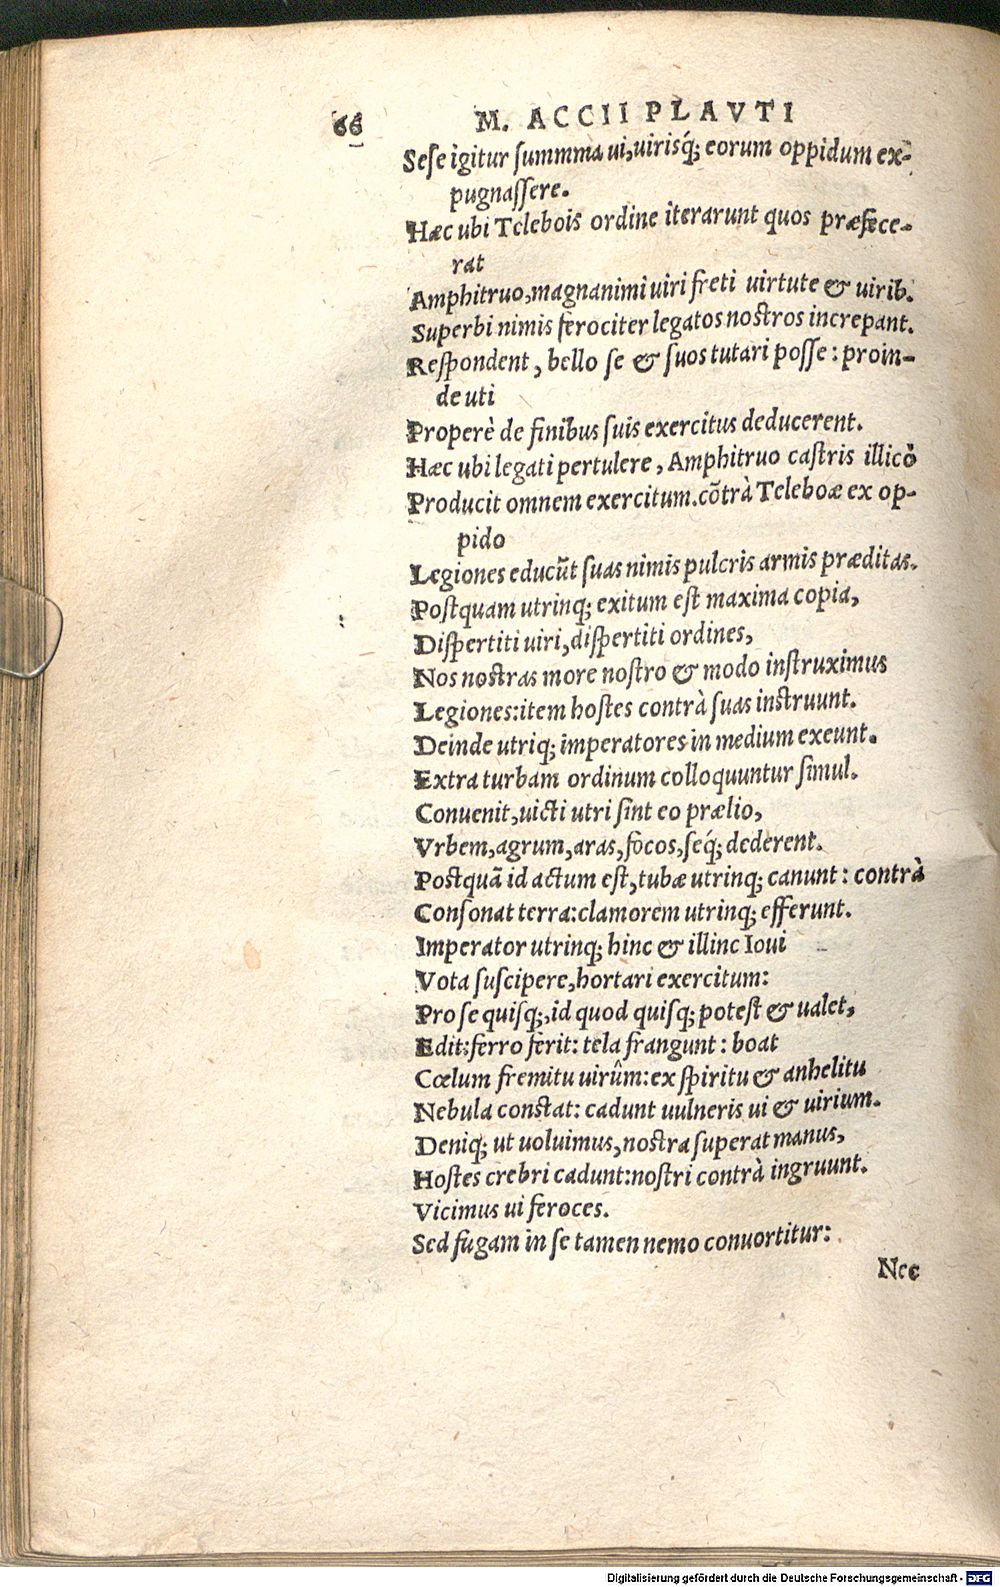 66 M. ACCII PLAVTI
Seſe igitur ſummma ui, uirisq́; eorum oppidum ex-
pugnaſſere.
Hæc ubi Telebois ordine iterarunt quos præfece-
rat
Amphitruo, magnanimi uiri freti uirtute & uirib.
Superbi nimis ferociter legatos noſtros increpant.
Reſpondent, bello ſe & ſuos tutari poſſe: proin-
de uti
Properè de finibus ſuis exercitus deducerent.
Hæc ubi legati pertulere, Amphitruo caſtris illicò
Producit omnem exercitum. cōtrà Teleboæ ex op-
pido
Legiones educūt ſuas nimis pulcris armis præditas.
Poſtquam utrinq; exitum eſt maxima copia,
Diſpertiti uiri, diſpertiti ordines,
Nos noſtras more noſtro & modo inſtruximus
Legiones: item hoſtes contrà ſuas inſtruunt.
Deinde utriq; imperatores in medium exeunt.
Extra turbam ordinum colloquuntur ſimul.
Conuenit, uicti utri ſint eo prælio,
Vrbem, agrum, aras, focos, ſeq́; dederent.
Poſtquā id actum eſt, tubæ utrinq; canunt: contrà
Conſonat terra: clamorem utrinq; efferunt.
Imperator utrinq; hinc & illinc Ioui
Vota ſuſcipere, hortari exercitum:
Pro ſe quiſq;, id quod quiſq; poteſt & ualet,
Edit: ferro ferit: tela frangunt: boat
Cœlum fremitu uirûm: ex ſpiritu & anhelitu
Nebula conſtat: cadunt uulneris ui & uirium.
Deniq; ut uoluimus, noſtra ſuperat manus,
Hoſtes crebri cadunt: noſtri contrà ingruunt.
Vicimus ui feroces.
Sed fugam in ſe tamen nemo conuortitur:
Nec
Digitalisierung gefördert durch die Deutsche Forschungsgemeinschaft - DFG